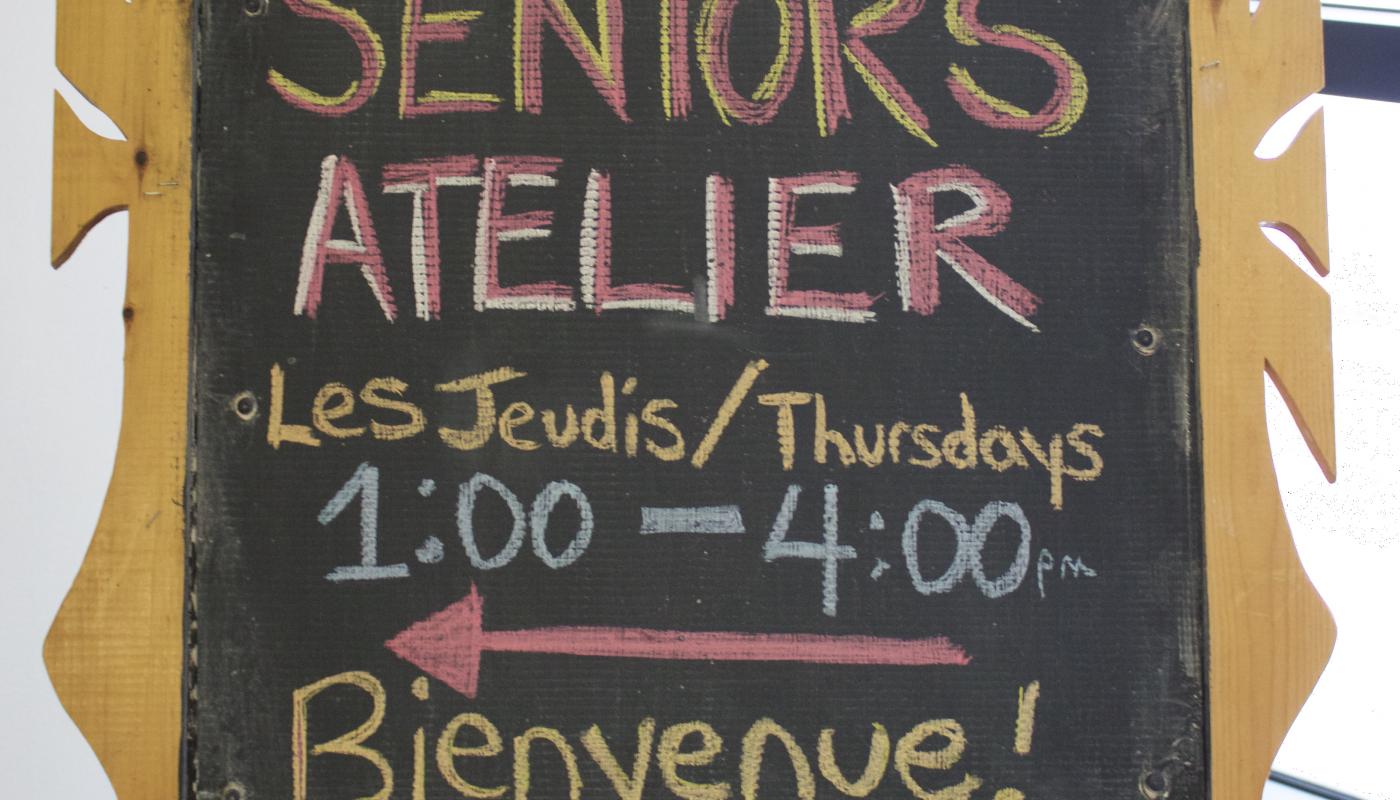 SENIORS
ATELIER
Les Jeudis/Thursdays
1:00 - 4:00 pm
Bienvenue!